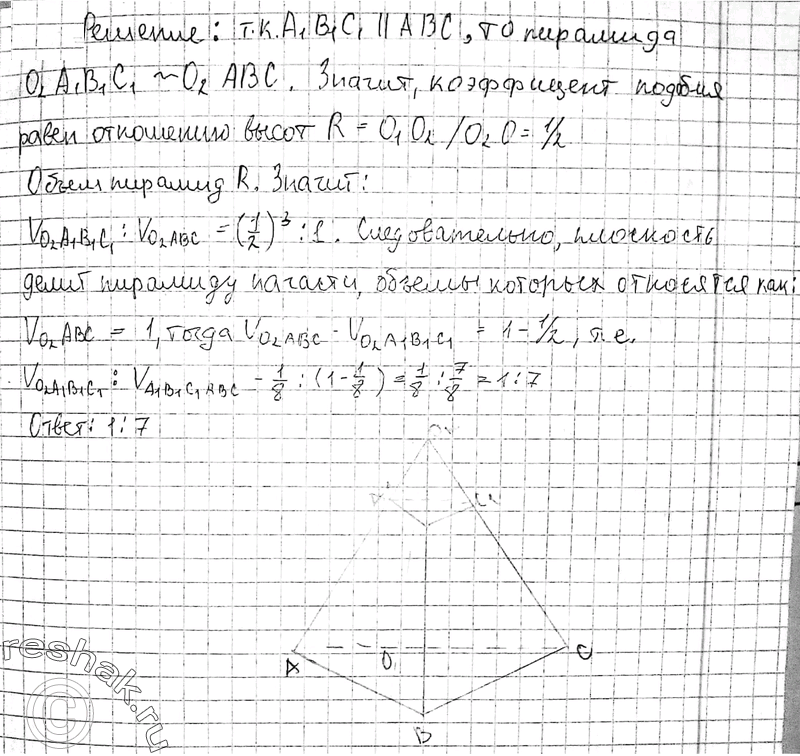 Решение: т.к. A₁B₁C₁ || ABC, то пирамида
O₂A₁B₁C₁ ~ O₂ABC. Значит, коэффициент подобия
равен отношению высот R = O₁O₂/O₂O = 1/2
Объем пирамид R. Значит:
V_{O₂A₁B₁C₁} : V_{O₂ABC} = (1/2)³ : 1. Следовательно, плоскость
делит пирамиду на части, объемы которых относятся как:
V_{O₂ABC} = 1, тогда V_{O₂ABC} - V_{O₂A₁B₁C₁} = 1 - 1/2, т.е.
V_{O₂A₁B₁C₁} : V_{A₁B₁C₁ABC} - 1/8 : (1 - 1/8) = 1/8 : 7/8 = 1:7
Ответ: 1:7
C₁
A
O
C
B
reshak.ru
©